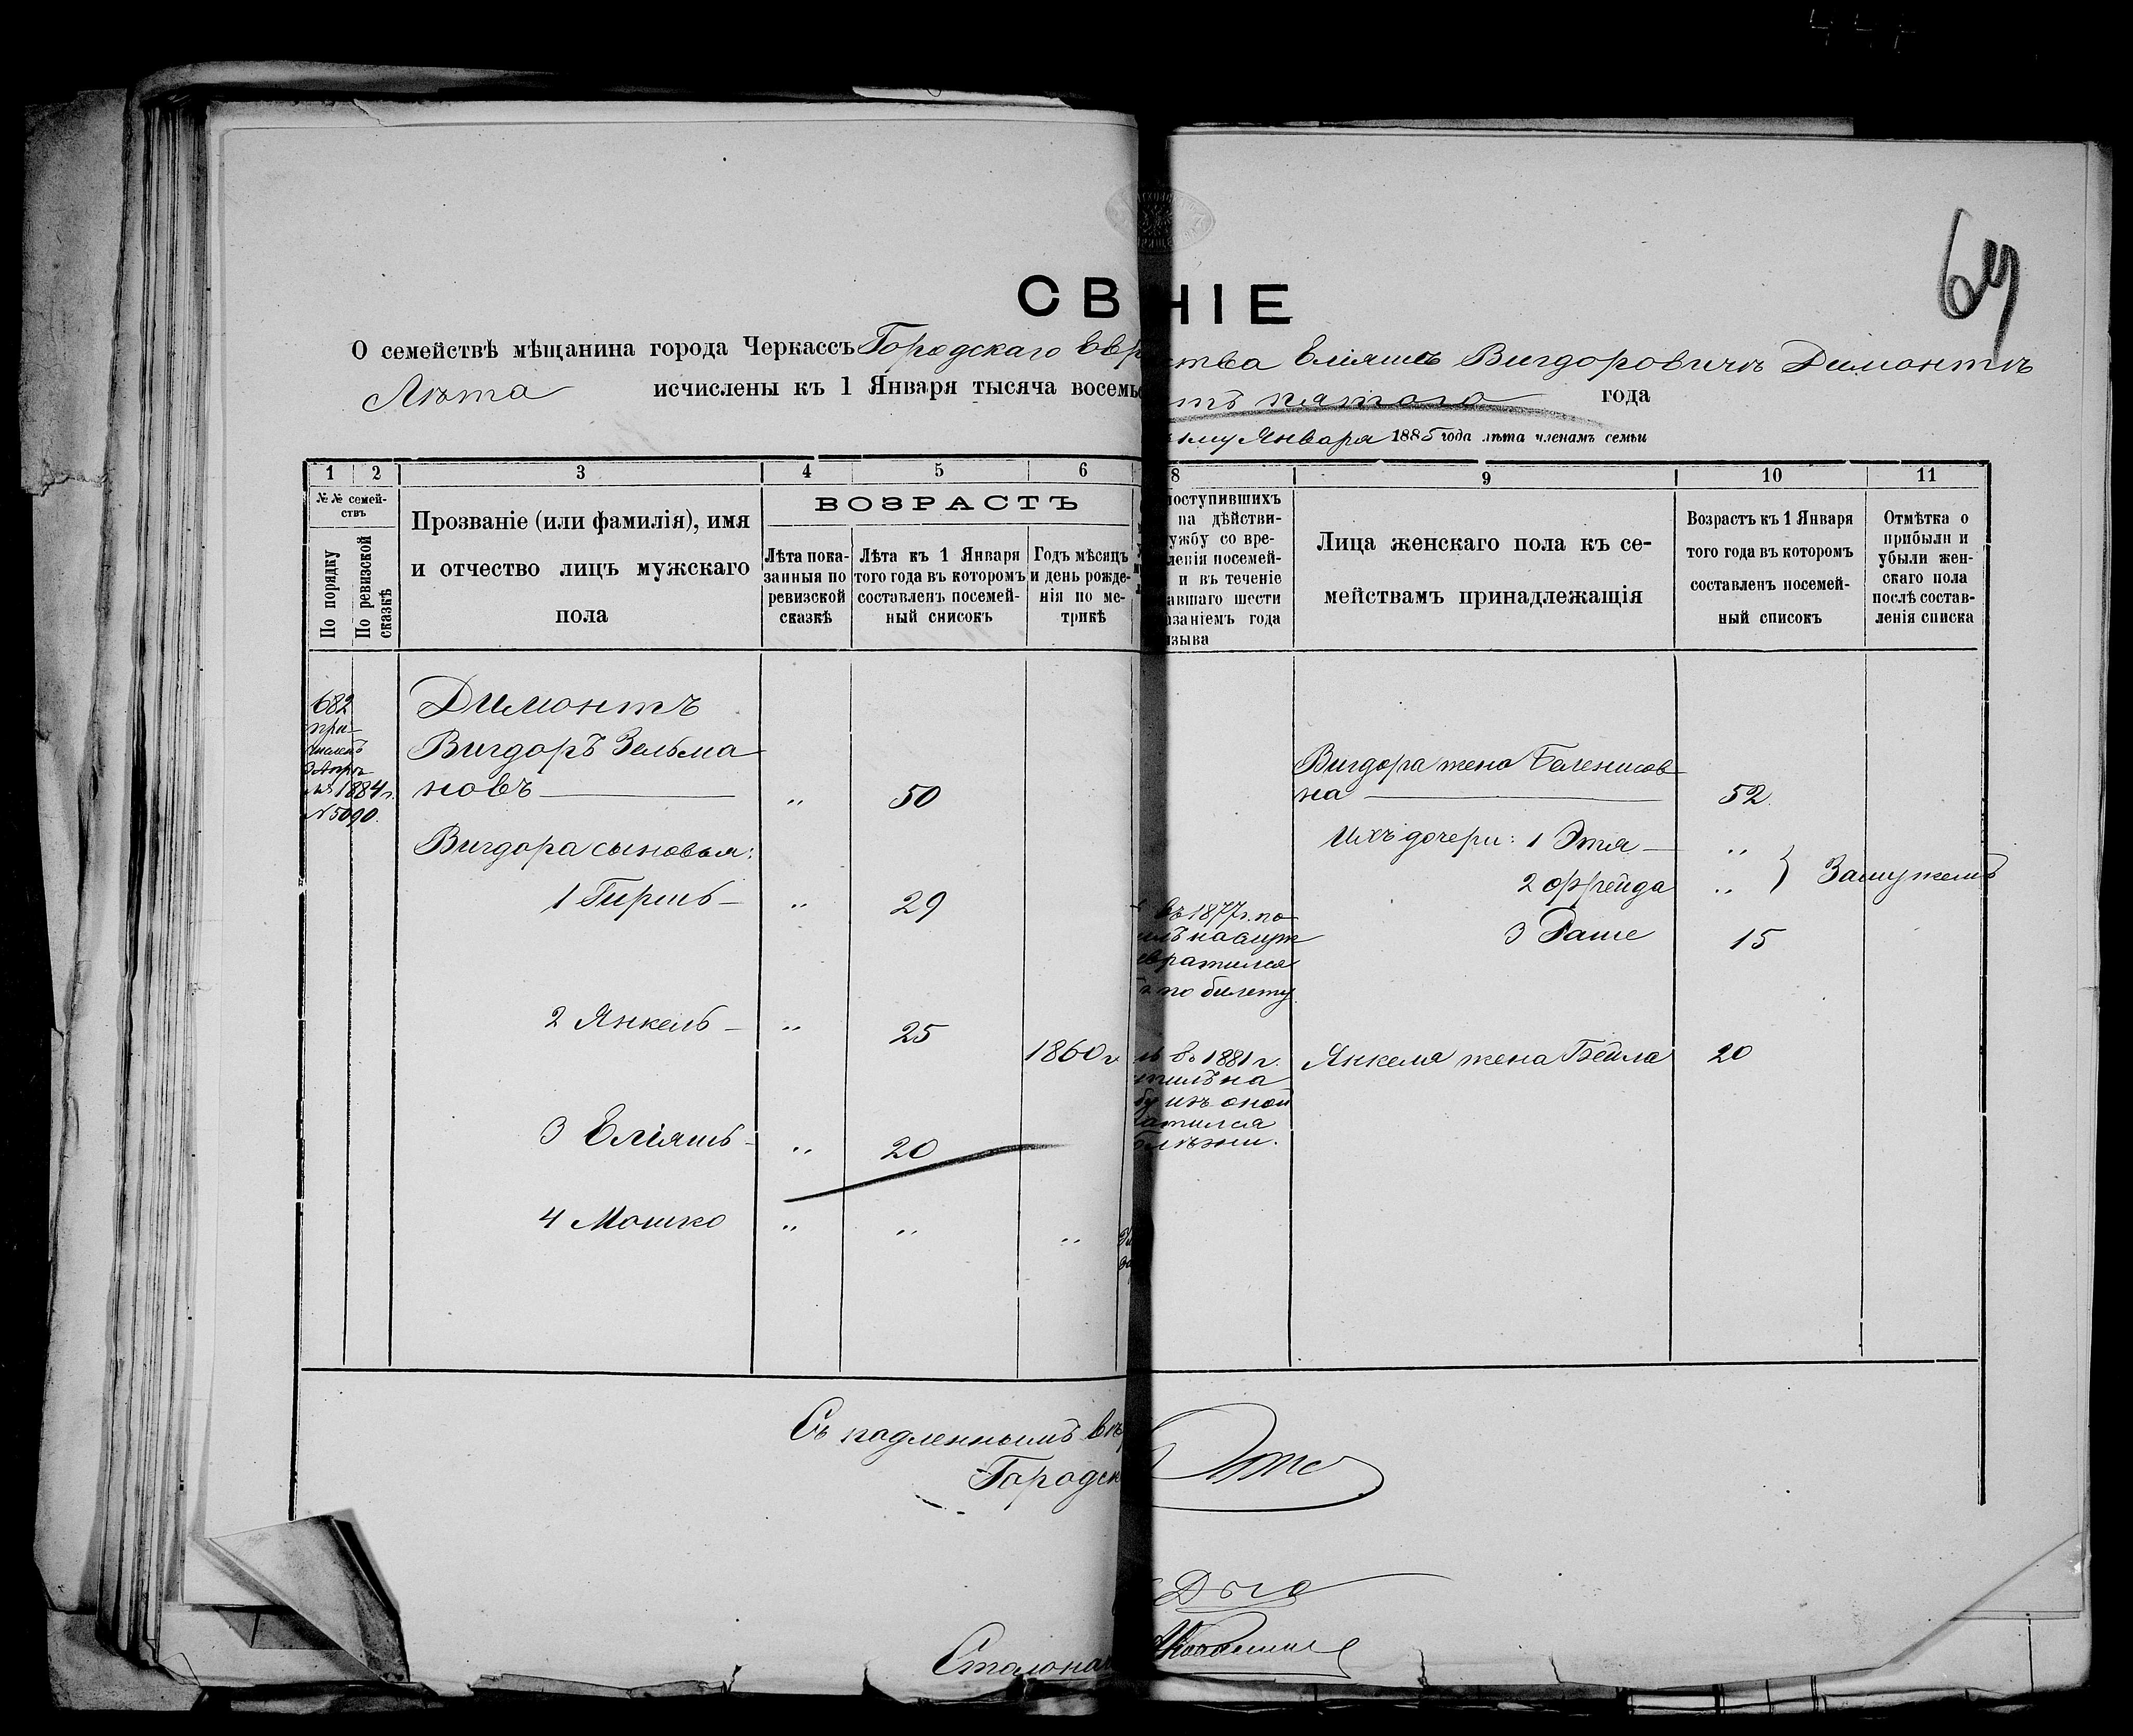 447
69
СВ НІЕ
О семействѣ мѣщанина города Черкассъ Городскаго Евр ства Еліяшъ Вигдоровичъ Димонтъ
Лѣта исчислены къ 1 Января тысяча восемь тъ пятаго года
1му Января 1885 года лѣта членамъ семьи
1 2 3 4 5 6 8 9 10 11
№№ семей-
ствъ
По порядку
По ревизской
сказкѣ
Прозваніе (или фамилія), имя
и отчество лицъ мужскаго
пола
ВОЗРАСТЪ
Лѣта пока-
занныя по
ревизской
сказкѣ
Лѣта къ 1 Января
того года въ которомъ
составленъ посемей-
ный списокъ
Годъ мѣсяцъ
и день рожде-
нія по ме-
трикѣ
поступившихъ
на дѣйстви-
ужбу со вре-
ленія посемей-
и въ теченіе
авшаго шести
азаніемъ года
изыва
Лица женскаго пола къ се-
мействамъ принадлежащія
Возрастъ къ 1 Января
того года въ которомъ
составленъ посемей-
ный списокъ
Отмѣтка о
прибыли и
убыли жен-
скаго пола
послѣ состав-
ленія списка
682
при-
численъ
3 Апрѣ-
ля 1884 г.
№ 5090.
Димонтъ
Вигдоръ Зельма
новъ — " 50
Вигдора жена
на — 52
Вигдора сыновья:
Ихъ дочери: 1 Этя — "
2 Фрейда "
} Замужемъ
1 Гиршъ — " 29
въ 1877 г. по-
илъ на служ
вратился
по билету
3 Рашe 15
2 Янкель — " 25
1860 г.
въ 1881 г.
пилъ на
бу изъ оной
ратился
олѣзни.
Янкеля жена Бейла 20
3 Еліяшъ — " 20
4 Мошко " " "
Съ подлиннымъ вѣр
Городск
Столонач